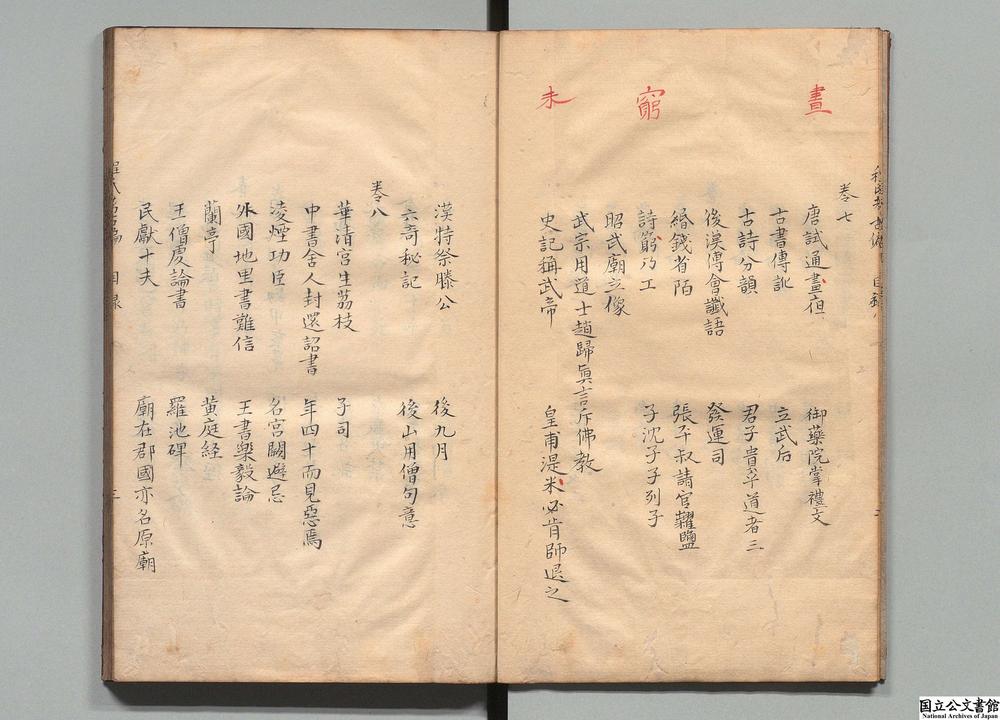 晝
窮
未
卷七
唐試通晝疸
御藥院掌禮文
古書傳訛
立武后
古詩分韻
君子貴乎道者三
後漢傅會讖語
發運司
緡錢省陌
張平叔請官糶鹽
詩窮乃工
子沈子子列子
昭武廟立像
武宗用道士趙歸眞言斥佛教
史記稱武帝
皇甫湜米必肯師退之
漢特祭滕公
後九月
六奇秘記
後山用僧句意
卷八
華清宮生荔枝
子司
中書舍人封還詔書
年四十而見惡焉
凌煙功臣
名宮闕避忌
外國地里書難信
王書樂毅論
蘭亭
黄庭経
王僧虔論書
羅池碑
民獻十夫
廟在郡國亦名原廟
目錄
三
国立公文書館
National Archives of Japan